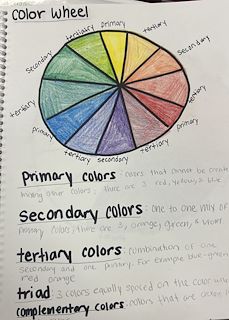 Color Wheel
tertiary
primary
tertiary
secondary
secondary
tertiary
tertiary
primary
primary
tertiary
secondary
tertiary
Primary colors: colors that cannot be create
mixing other colors; there are 3 red, yellow, & blue
Secondary colors: one to one mix of
primary colors; there are 3, orange, green, &
tertiary colors: combination of one
secondary and one primary. For example blue-green
red orange
triad: 3 colors equally spaced on the color whe
complementary colors: colors that are